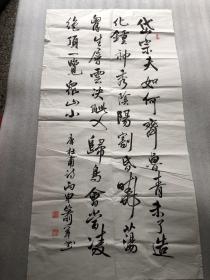 岱宗夫如何齊魯青未了造
化鍾神秀陰陽割昏曉蕩
胷生層雲決眦入歸鳥會當凌
絕頂一覽眾山小
唐杜甫詩丙申書